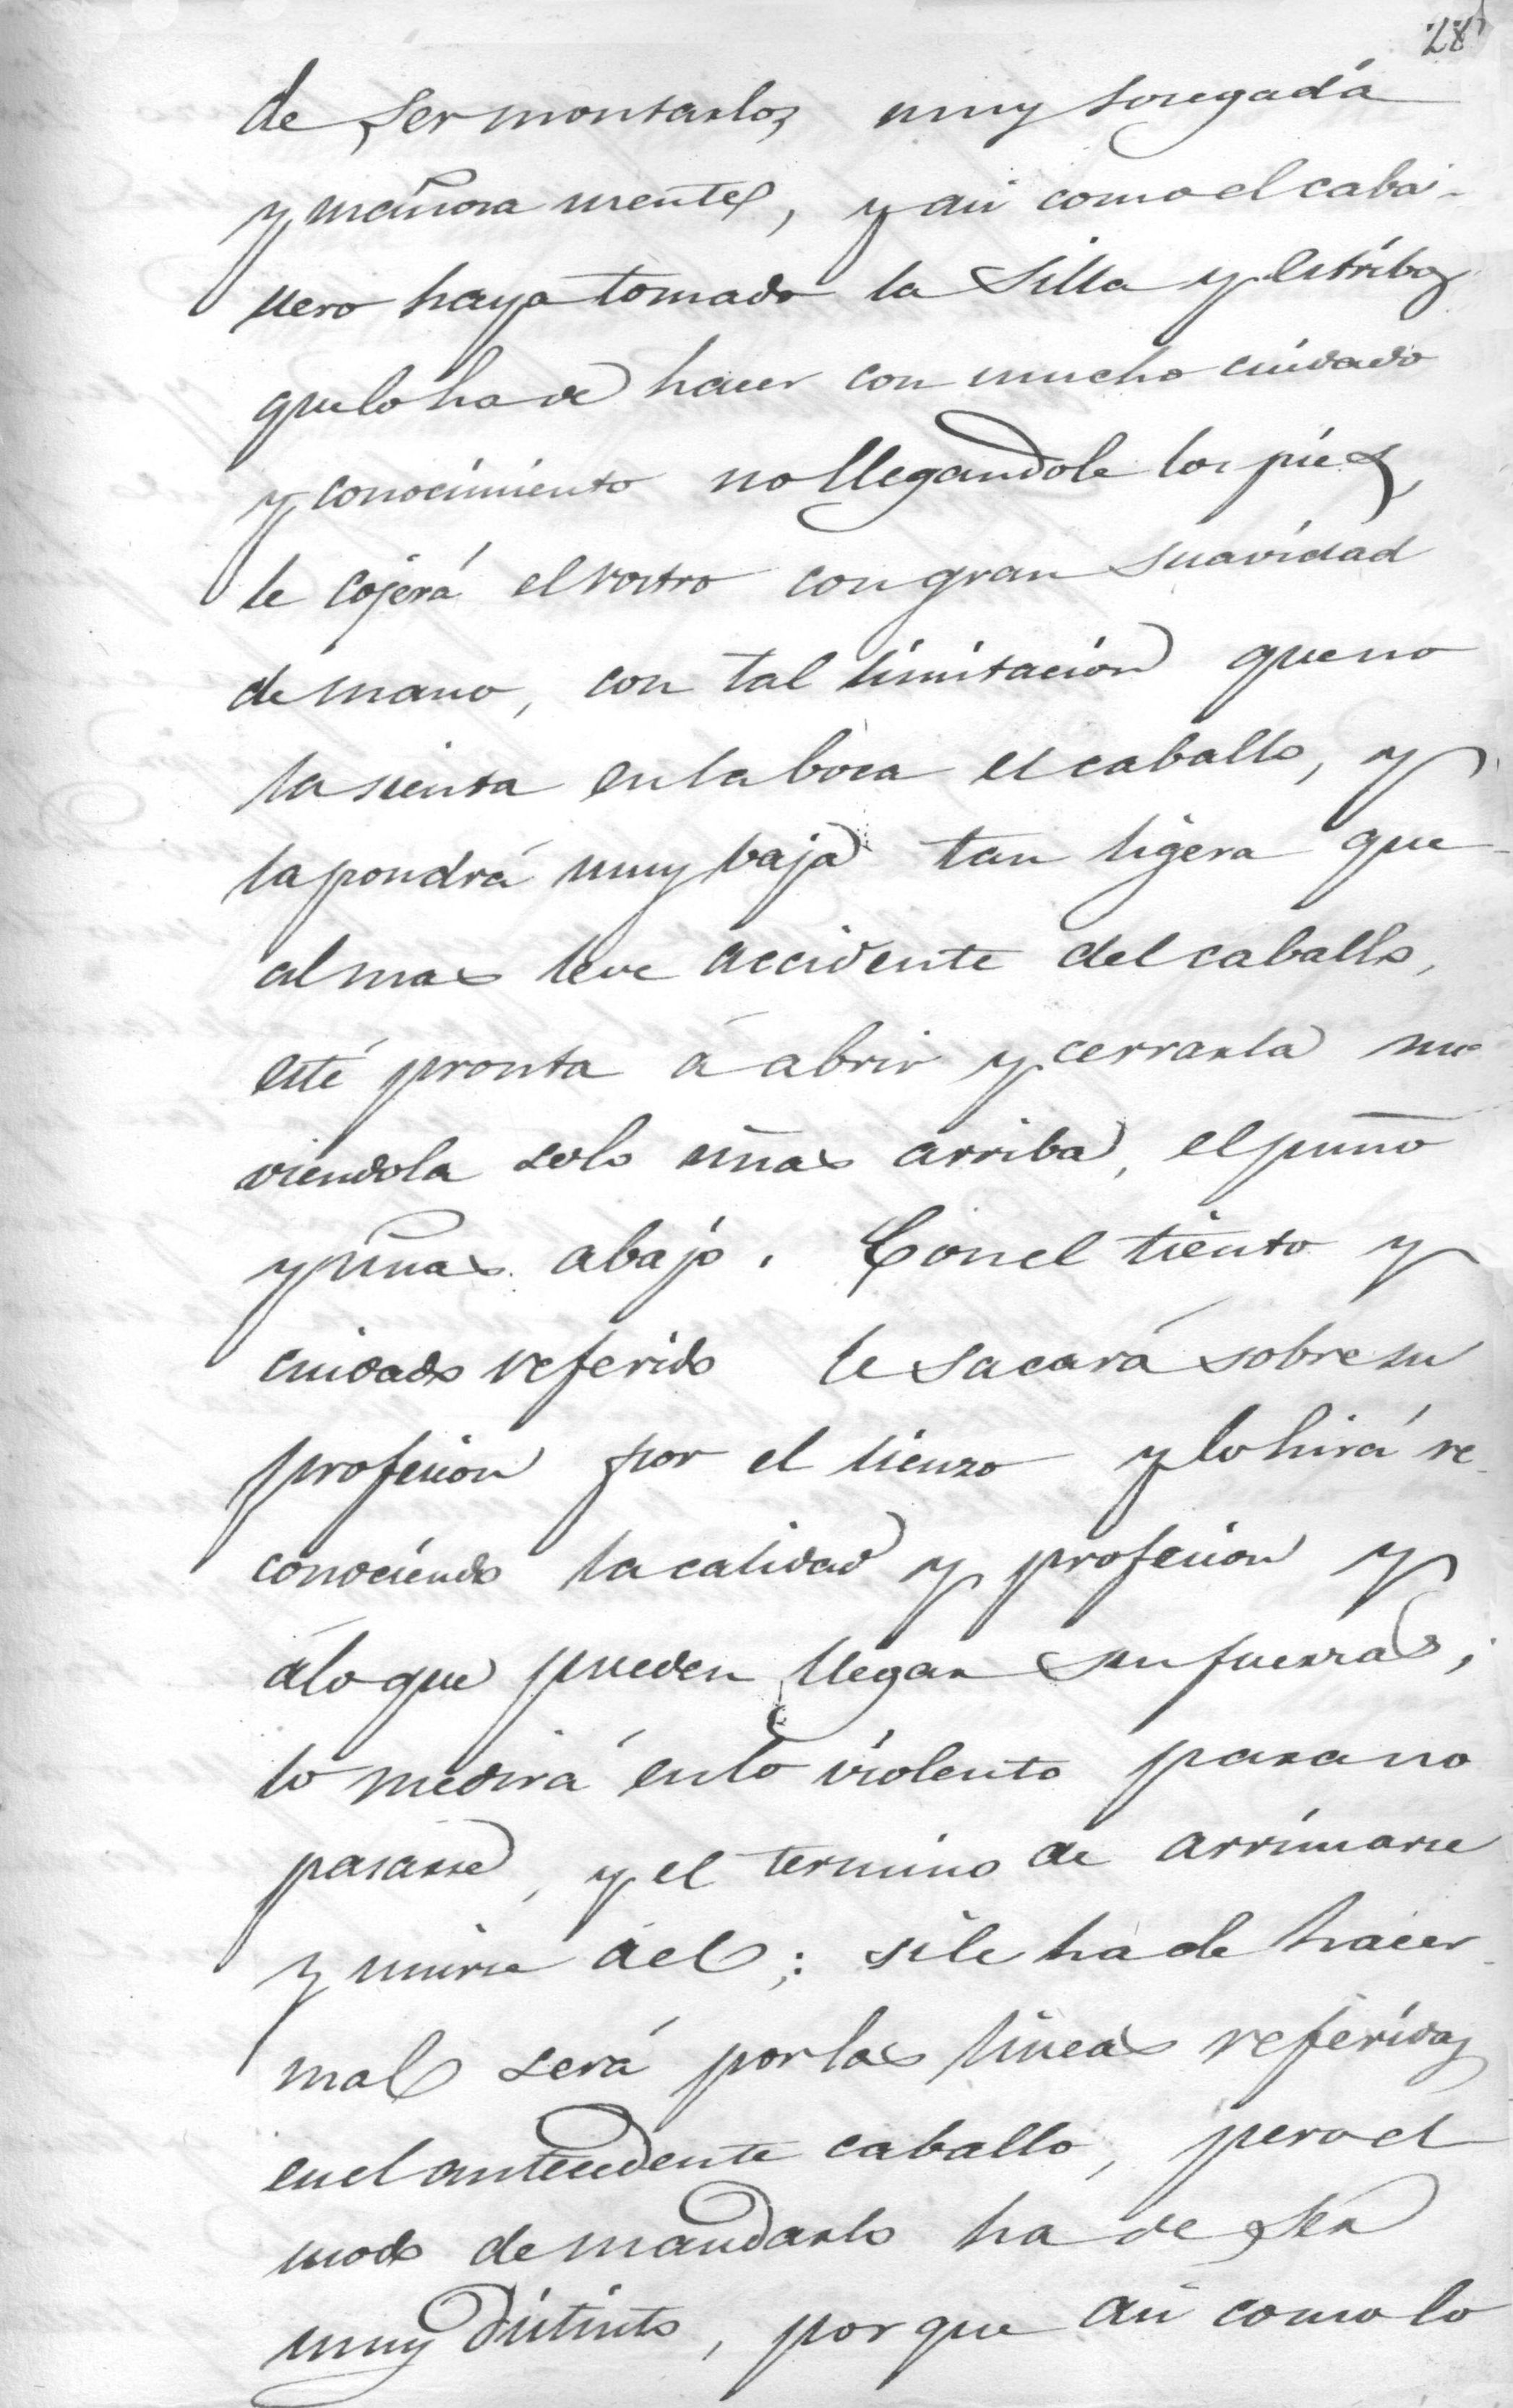 28
de ser montarlo, muy sosegada
y mañosa mente, y asi como el caba-
llero haya tomado la Silla y estribos
que lo ha de hacer con mucho cuidado
y conocimiento no llegandole los pies,
le cojerá el rostro con gran suavidad
de mano, con tal limitacion que no
la sienta en la boca el caballo, y
la pondrá muy baja tan ligera que
al mas leve accidente del caballo,
esté pronta á abrir y cerrarla mo
viendola solo uñas arriba, el puño
y uñas abajo. Con el tiento y
cuidado referido le sacará sobre su
profesion por el lienzo y lo hirá re-
conociendo la calidad y profesion y
á lo que pueden llegar sus fuerzas;
lo medirá en lo violento para no
pasarse, y el termino de arrimarse
y unirse á el; si le ha de hacer
mal será por las lineas referidas
en el antecedente caballo, pero el
modo de mandarlo ha de ser
muy distinto, por que asi como lo